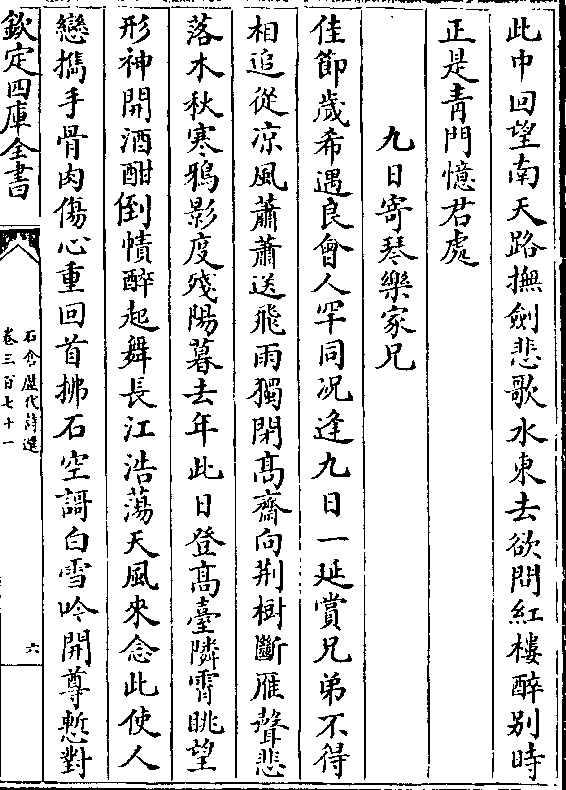 此中回望南天路撫劍悲歌水東去欲問紅樓醉别時
正是青門憶君處
九日寄琴樂家兄
佳節歲希遇良會人罕同况逢九日一延賞兄弟不得
相追從凉風蕭蕭送飛雨獨閉髙齋向荆樹斷雁聲悲
落木秋寒鴉影度殘陽暮去年此日登髙臺隣霄眺望
形神開酒酣倒幘醉起舞長江浩蕩天風來念此使人
戀攜手骨肉傷心重回首拂石空謌白雪吟開尊慙對
欽定四庫全書
石倉歷代詩選
卷三百七十一
六